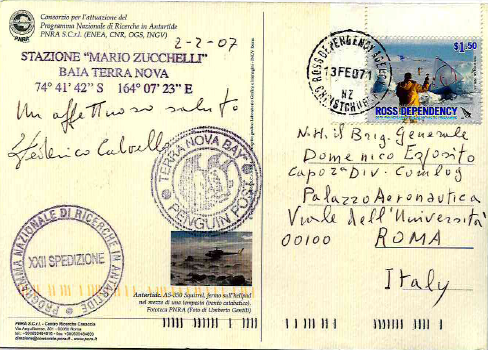 PNRA
Consorzio per l'attuazione del
Programma Nazionale di Ricerche in Antartide
PNRA S.C.r.l. (ENEA, CNR, OGS, INGV)
2-2-07
STAZIONE "MARIO ZUCCHELLI"
BAIA TERRA NOVA
74° 41' 42" S 164° 07' 23" E
Un affettuoso saluto
Federico
TERRA NOVA BAY
PENGUIN POST
PROGRAMMA NAZIONALE DI RICERCHE IN ANTARTIDE
XXII SPEDIZIONE
Antartide. AS-350 Squirrel, fermo sull'helipad
nel mezzo di una tempesta (vento catabatico).
Fototeca PNRA (Foto di Umberto Gentili)
PNRA S.C.r.l. - Centro Ricerche Casaccia
ROSS DEPENDENCY AGENCY
13FE07
NZ
CHRISTCHURCH
$1.50
ROSS DEPENDENCY
N.H. il Brig. Generale
Domenico Esposito
Capo 2a Div. Comlog
Palazzo Aeronautica
Viale dell'Università
00100 ROMA
Italy